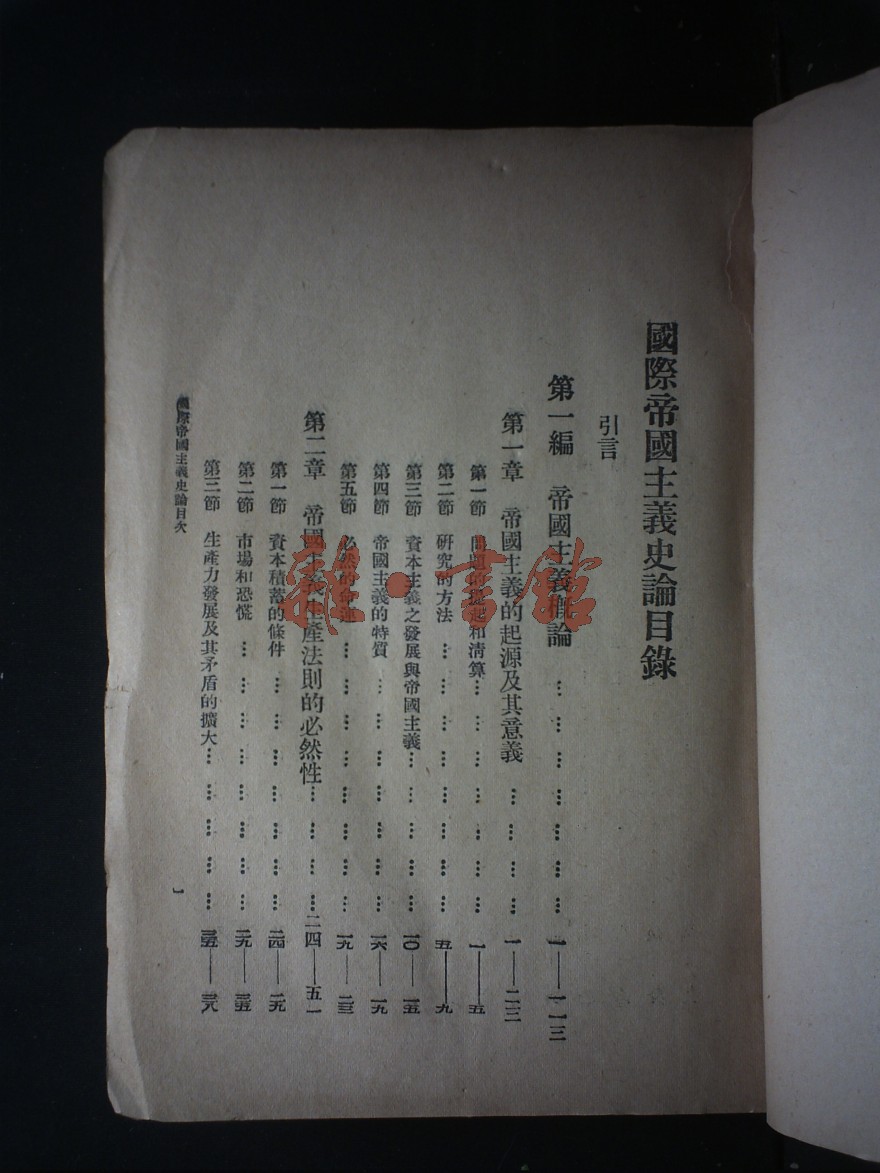 國際帝國主義史論目錄
引言
第一編 帝國主義概論 ⋯⋯⋯⋯⋯⋯⋯ 一——一一三
第一章 帝國主義的起源及其意義 ⋯⋯⋯⋯ 一——二三
第一節 問題的提起和清算⋯⋯⋯⋯⋯⋯⋯ 一——五
第二節 研究的方法 ⋯⋯⋯⋯⋯⋯⋯⋯ 五——九
第三節 資本主義之發展與帝國主義⋯⋯⋯⋯⋯ 一〇——一五
第四節 帝國主義的特質 ⋯⋯⋯⋯⋯⋯⋯ 一六——一九
第五節 必然的命運 ⋯⋯⋯⋯⋯⋯⋯⋯ 一九——二三
第二章 帝國主義生產法則的必然性⋯⋯⋯⋯二四——五一
第一節 資本積蓄的條件 ⋯⋯⋯⋯⋯⋯⋯ 二四——二九
第二節 市場和恐慌 ⋯⋯⋯⋯⋯⋯⋯⋯ 二九——三五
第三節 生產力發展及其矛盾的擴大⋯⋯⋯⋯⋯ 三五——三八
國際帝國主義史論目次
一
雜·書館